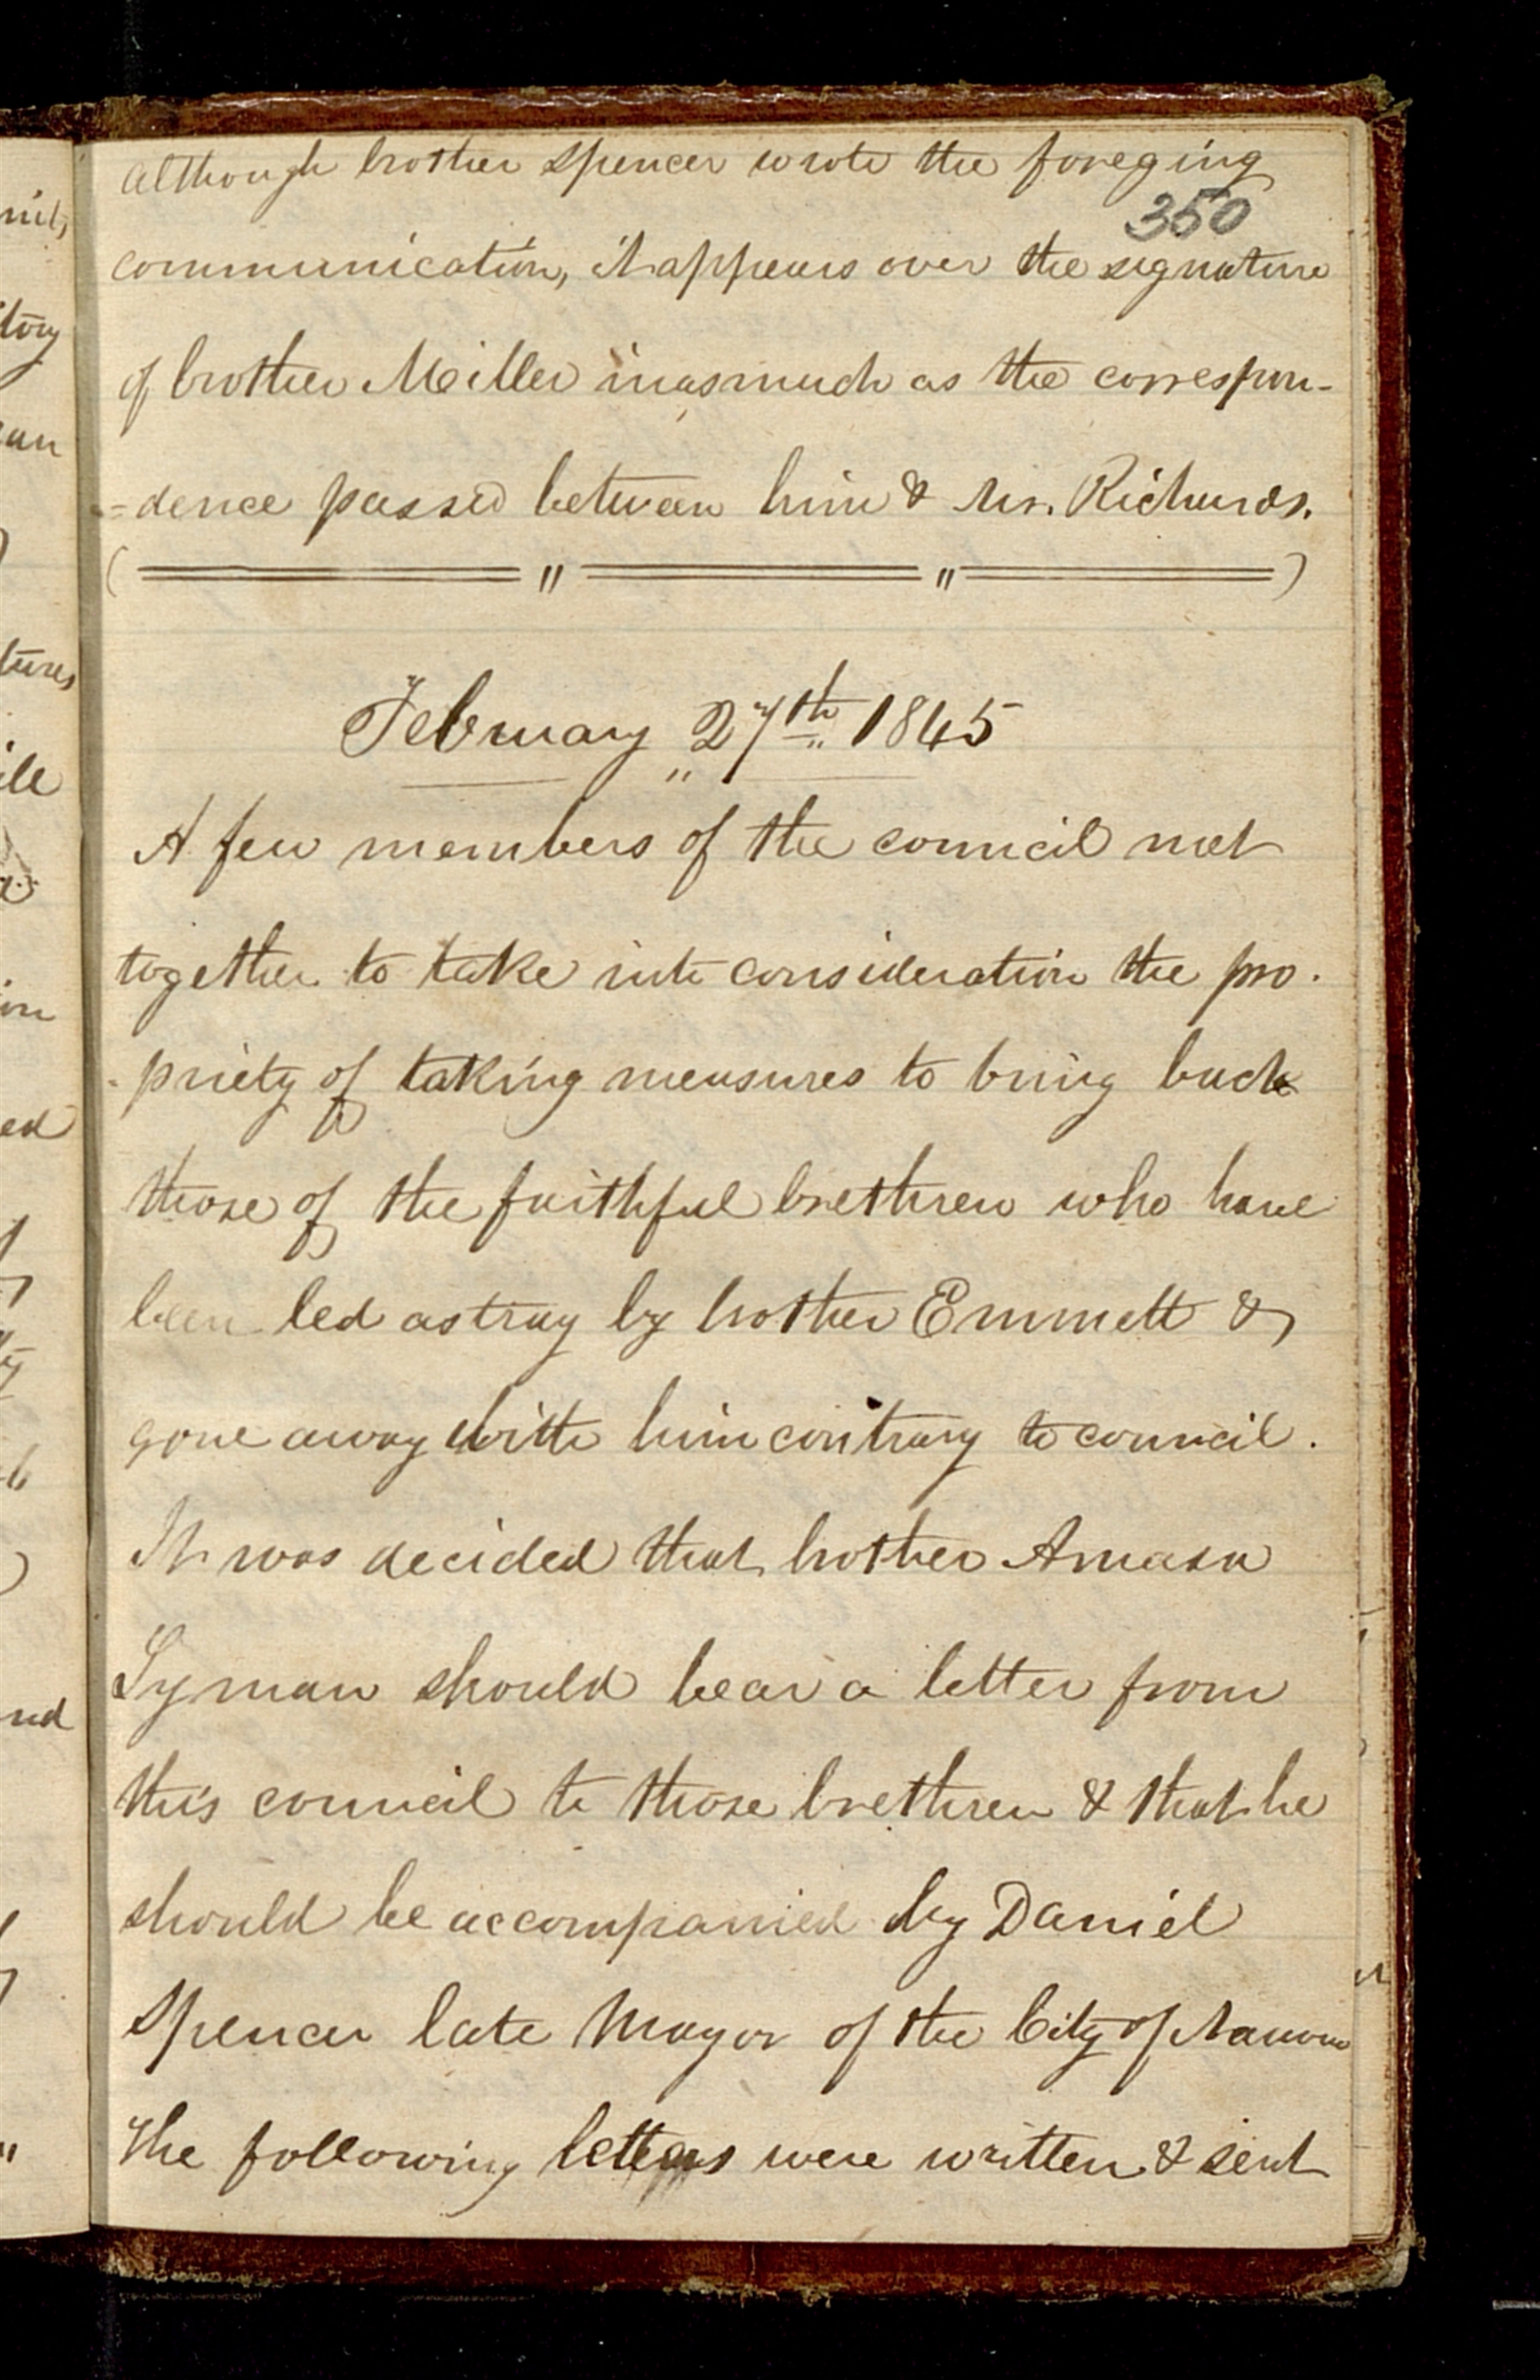 although brother Spencer wrote the foreging
350
communication, it appears over the signature
of brother Miller inasmuch as the correspon-
=dence passed between him & Mr. Richards.
( ═════ " ═════ " ═════ )
February 27th 1845
A few members of the council met
together to take into consideration the pro-
-priety of taking measures to bring back
those of the faithful brethren who have
been led astray by brother Emmett &
gone away with him contrary to council.
It was decided that brother Amasa
Lyman should bear a letter from
this council to those brethren & that he
should be accompanied by Daniel
Spencer late Mayor of the City of Nauvoo
The following letters were written & sent